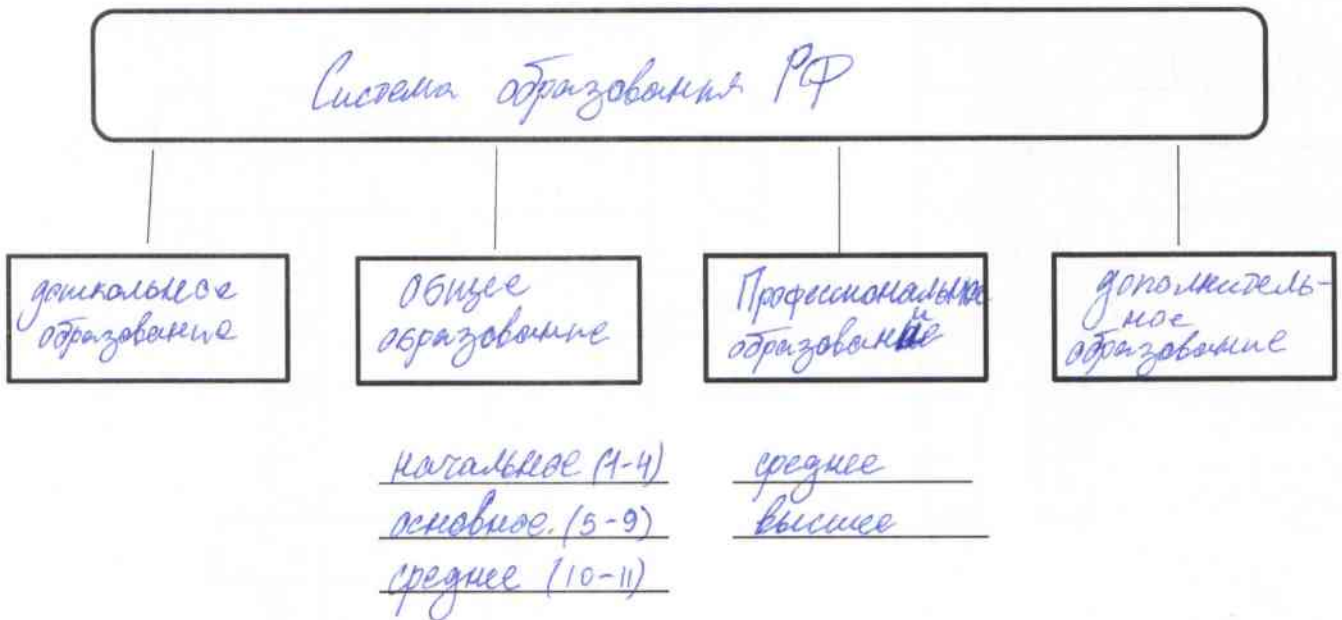 Система образования РФ
дошкольное
образование
Общее
образование
Профессиональное
образование
дополнитель-
ное
образование
начальное (1-4)
основное. (5-9)
среднее (10-11)
среднее
высшее